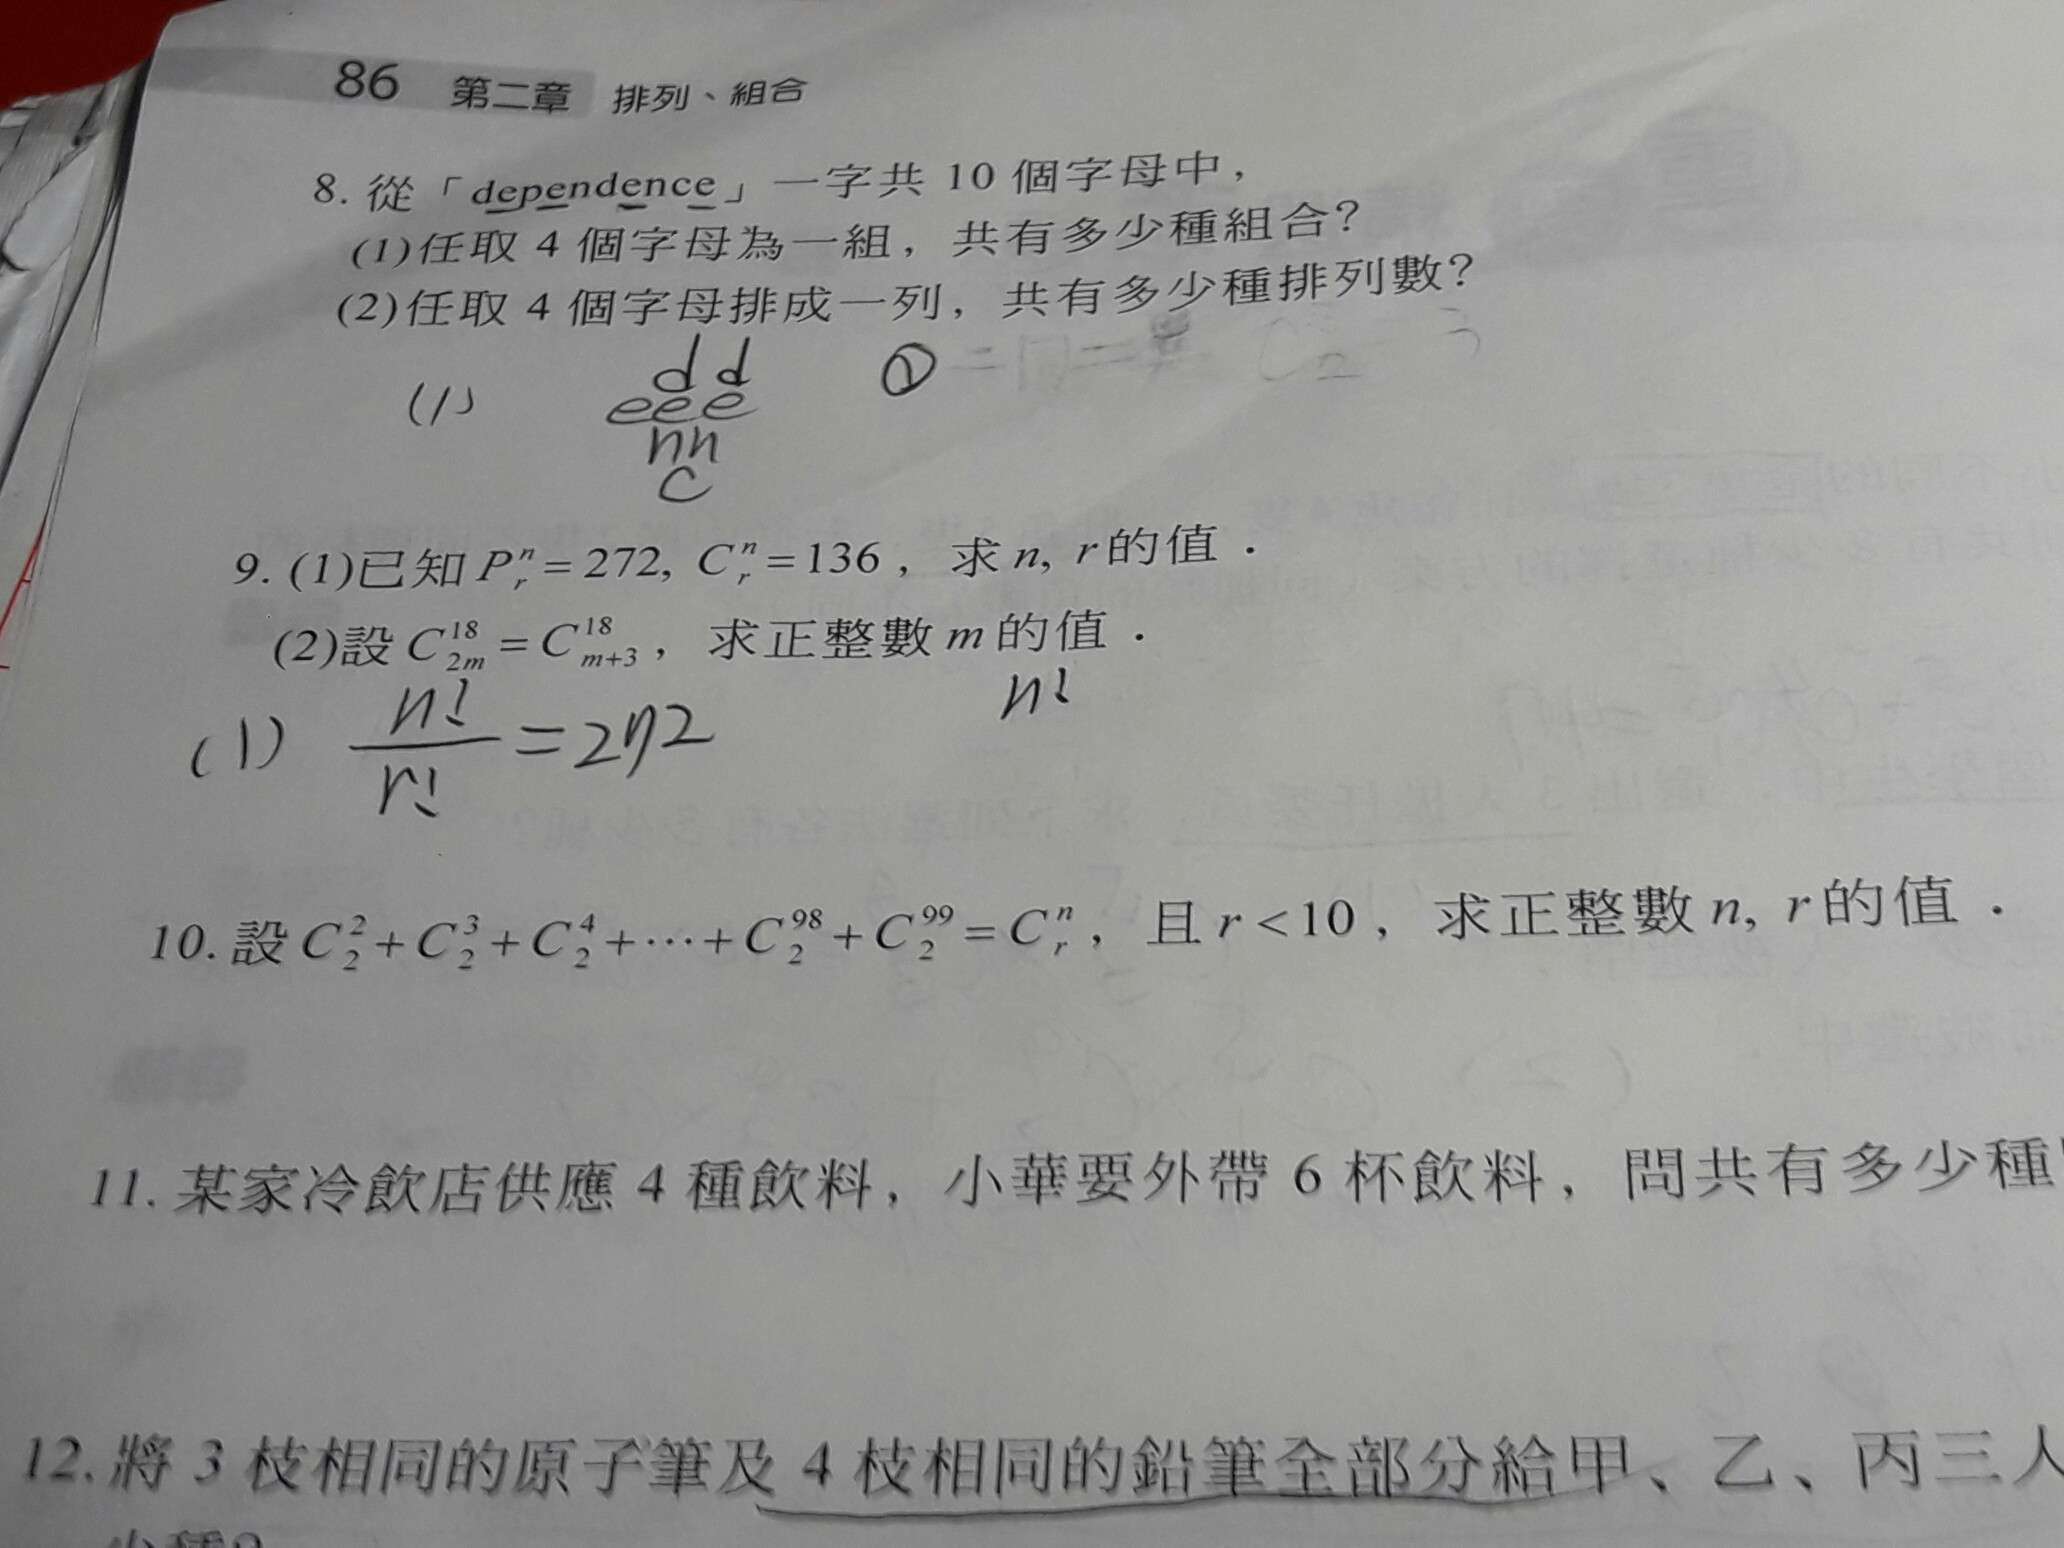 86 第二章 排列、組合
8. 從「dependence」一字共 10 個字母中，
(1)任取 4 個字母為一組，共有多少種組合？
(2)任取 4 個字母排成一列，共有多少種排列數？
(1) d d ① 二同二異 C 2 3
eee
nn
c
9. (1)已知 Pⁿᵣ = 272, Cⁿᵣ = 136，求 n, r 的值．
(2)設 C¹⁸₂ₘ = C¹⁸ₘ₊₃，求正整數 m 的值．
n!
(1) n!/r! = 272
10. 設 C²₂ + C³₂ + C⁴₂ + ⋯ + C⁹⁸₂ + C⁹⁹₂ = Cⁿᵣ，且 r < 10，求正整數 n, r 的值．
11. 某家冷飲店供應 4 種飲料，小華要外帶 6 杯飲料，問共有多少種
12. 將 3 枝相同的原子筆及 4 枝相同的鉛筆全部分給甲、乙、丙三人
少種？